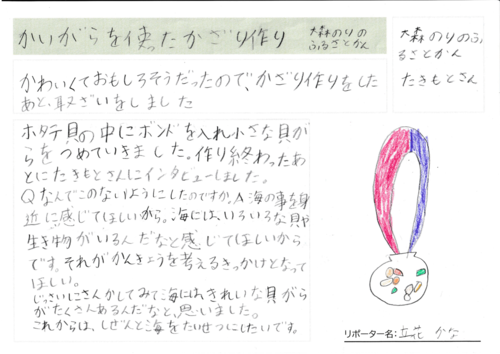 かいがらを使ったかざり作り
大森のりの
ふるさとかん
大森のりのふ
るさとかん
たきもとさん
かわいくておもしろそうだったので、かざり作りをした
あと、取ざいをしました
ホタテ貝の中にボンドを入れ小さな貝が
らをつめていきました。作り終わったあ
とにたきもとさんにインタビューしました。
Qなんでこのないようにしたのですか。A海の事を身
近に感じてほしいから。海には、いろいろな貝や
生き物がいるんだなと感じてほしいから
です。それがかんきょうを考えるきっかけとなって
ほしい。
じっさいにさんかしてみて海にはきれいな貝がら
がたくさんあるんだなと、思いました。
これからは、しぜんと海をたいせつにしたいです。
リポーター名:立花 かな